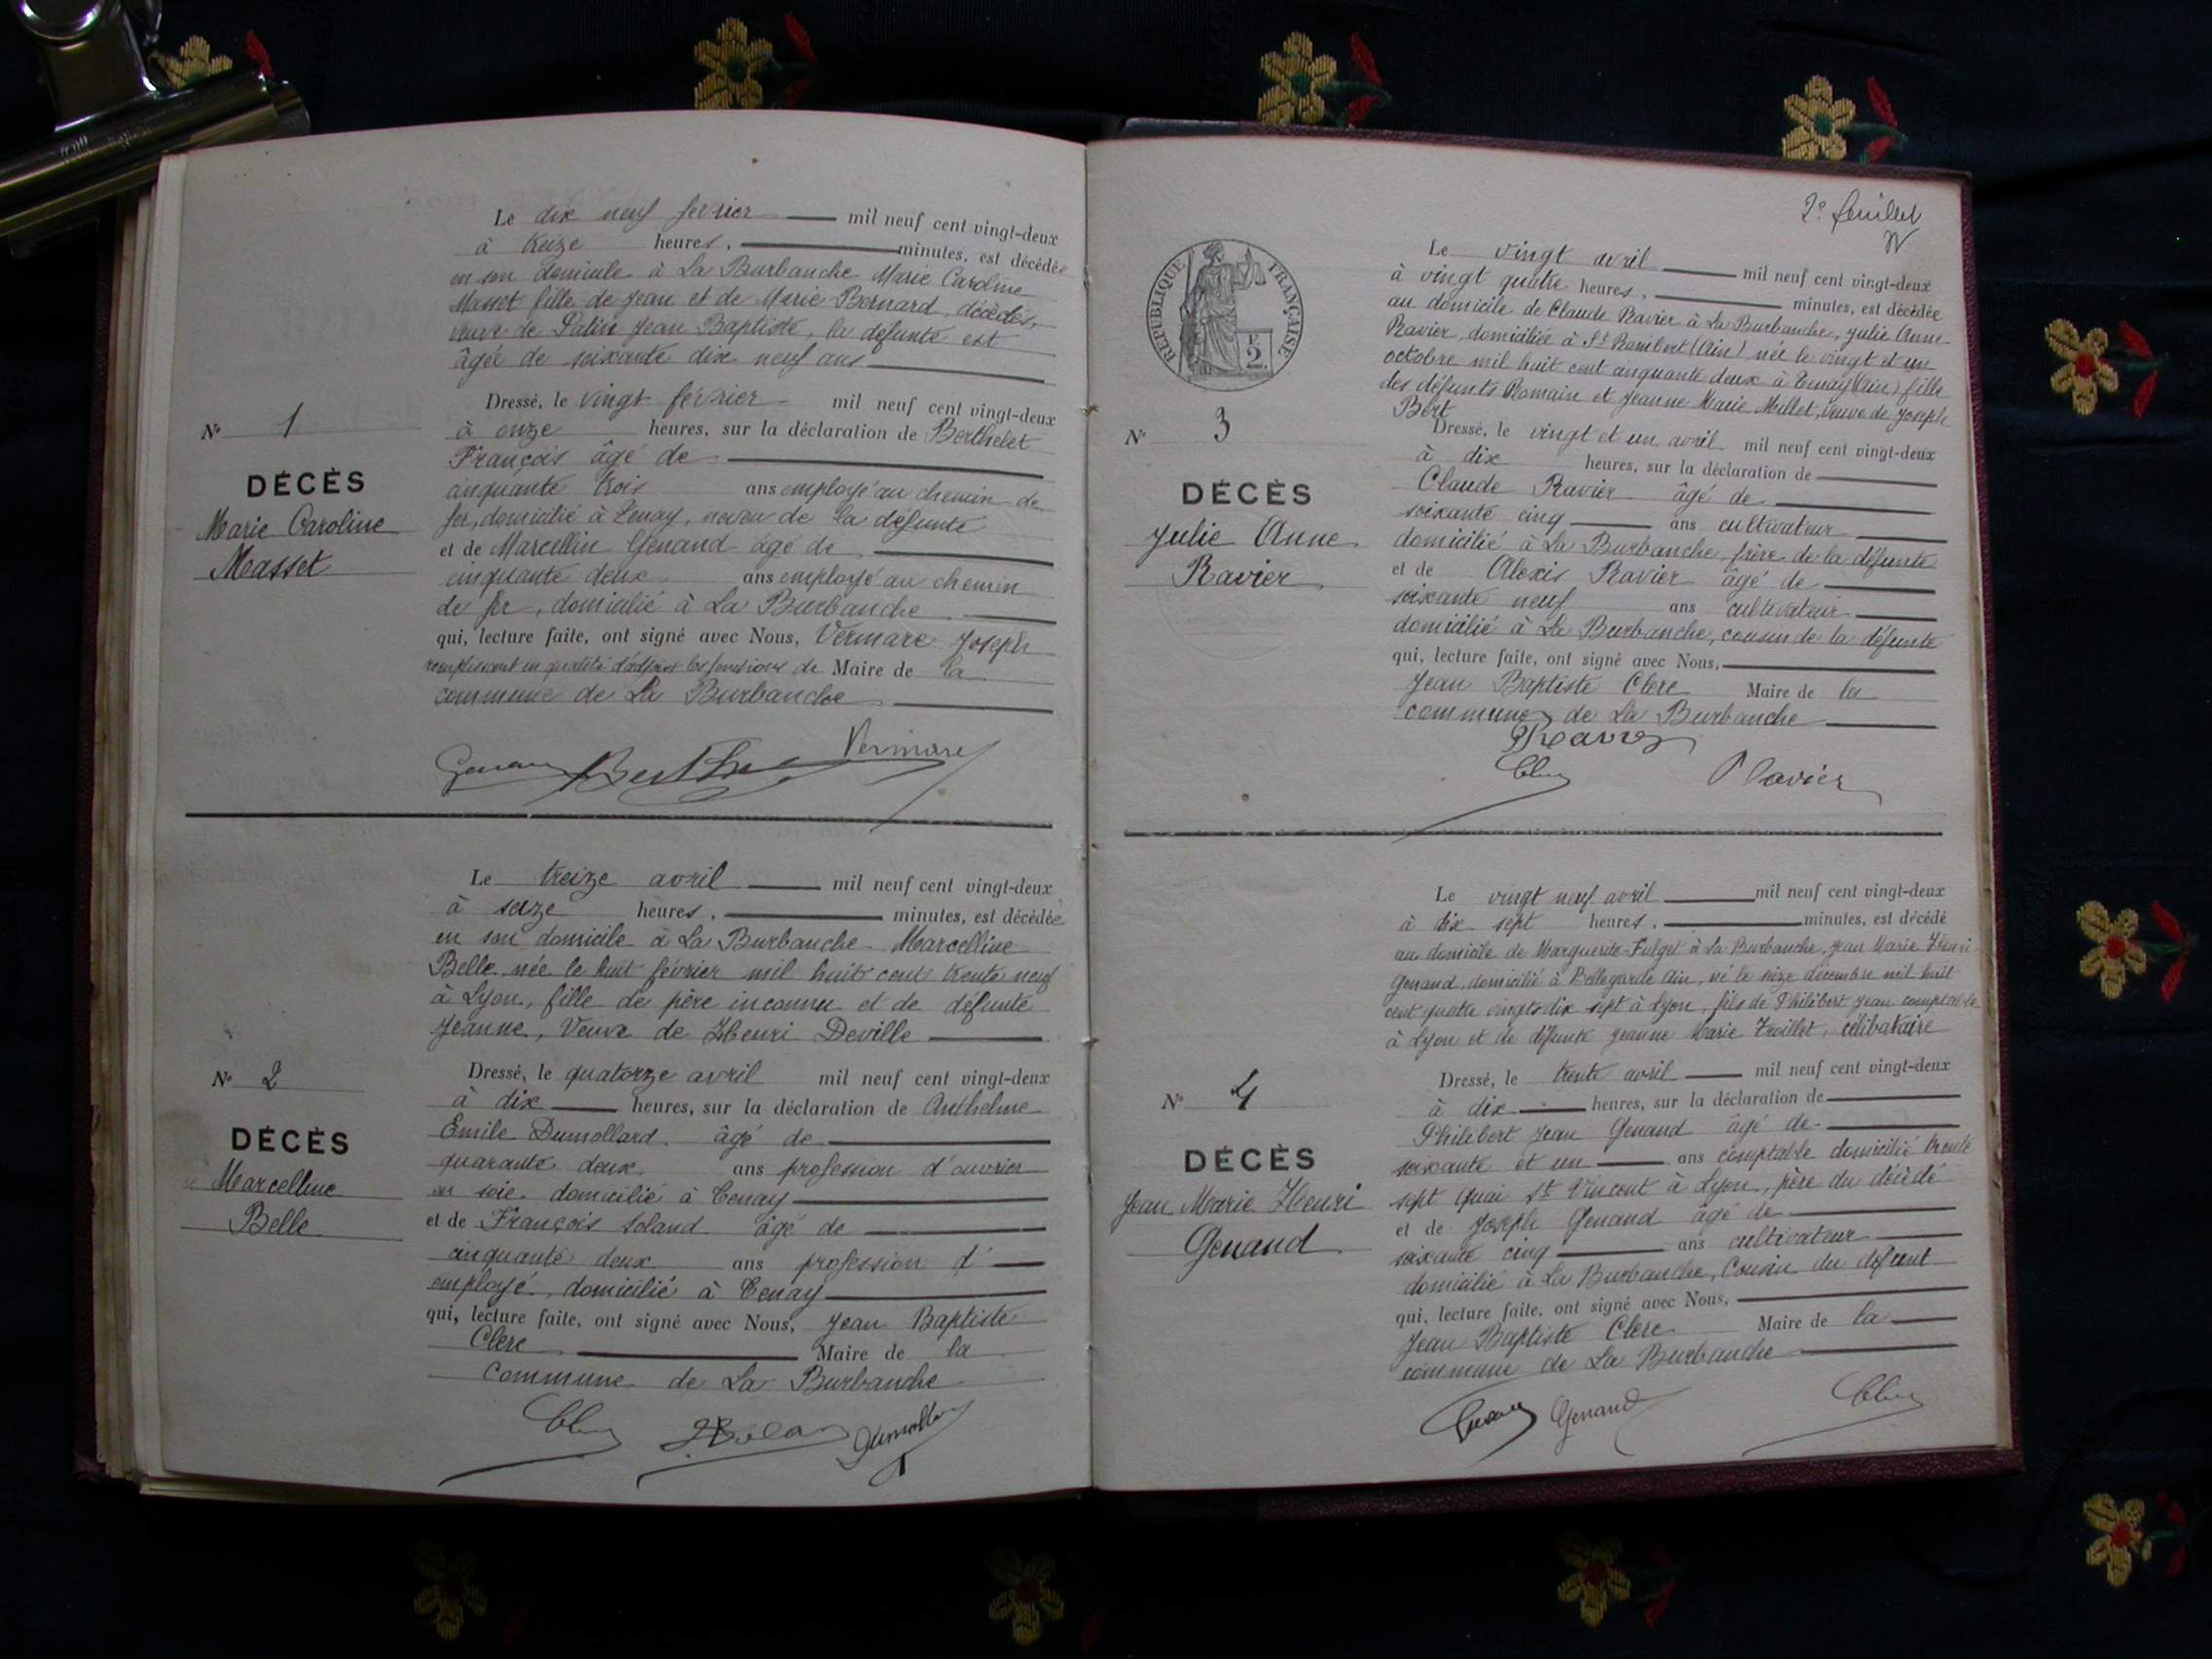 Le dix neuf février mil neuf cent vingt-deux
à treize heures, minutes, est décédée
en son domicile à La Burbanche Marie Caroline
Masset fille de Jean et de Marie Bernard, décédés,
veuve de Jean Baptiste, la défunte est
âgée de soixante dix neuf ans
Dressé, le vingt février mil neuf cent vingt-deux
à onze heures, sur la déclaration de Berthelet
François âgé de
cinquante trois ans employé au chemin de
fer, domicilié à Tenay, neveu de la défunte
et de Marcellin Genand âgé de
cinquante deux ans employé au chemin
de fer, domicilié à La Burbanche
qui, lecture faite, ont signé avec Nous, Vermare Joseph
remplissant en qualité d'adjoint les fonctions de Maire de la
commune de La Burbanche
Vermare
N° 1
DÉCÈS
Marie Caroline
Masset
Le treize avril mil neuf cent vingt-deux
à seize heures, minutes, est décédée
en son domicile à La Burbanche Marcelline
Belle, née le huit février mil huit cent trente neuf
à Lyon, fille de père inconnu et de défunte
Jeanne, Veuve de Henri Deville
Dressé, le quatorze avril mil neuf cent vingt-deux
à dix heures, sur la déclaration de Anthelme
Emile Dumollard âgé de
quarante deux ans profession d'ouvrier
en soie domicilié à Tenay
et de François Soland âgé de
cinquante deux ans profession d'
employé, domicilié à Tenay
qui, lecture faite, ont signé avec Nous, Jean Baptiste
Clerc Maire de la
commune de La Burbanche
N° 2
DÉCÈS
Marcelline
Belle
2e feuillet
RÉPUBLIQUE FRANÇAISE
2
Le vingt avril mil neuf cent vingt-deux
à vingt quatre heures, minutes, est décédée
au domicile de Claude Ravier à La Burbanche, Julie Anne
Ravier, domiciliée à St Rambert (Ain) née le vingt et un
octobre mil huit cent cinquante deux à Tenay (Ain) fille
des défunts Romain et Jeanne Marie Millet, veuve de Joseph
Bert
Dressé, le vingt et un avril mil neuf cent vingt-deux
à dix heures, sur la déclaration de
Claude Ravier âgé de
soixante cinq ans cultivateur
domicilié à La Burbanche, frère de la défunte
et de Alexis Ravier âgé de
soixante neuf ans cultivateur
domicilié à La Burbanche, cousin de la défunte
qui, lecture faite, ont signé avec Nous,
Jean Baptiste Clerc Maire de la
commune de La Burbanche
Ravier
N° 3
DÉCÈS
Julie Anne
Ravier
Le vingt neuf avril mil neuf cent vingt-deux
à dix sept heures, minutes, est décédé
au domicile de Marguerite à La Burbanche, Jean Marie Henri
Genand, domicilié à Bellegarde Ain, né le seize décembre mil huit
cent quatre vingts dix sept à Lyon, fils de Philibert Jean comptable
à Lyon et de défunte Jeanne Marie célibataire
Dressé, le trente avril mil neuf cent vingt-deux
à dix heures, sur la déclaration de
Philibert Jean Genand âgé de
soixante et un ans comptable domicilié trente
sept Quai St Vincent à Lyon, père du décédé
et de Joseph Genand âgé de
soixante cinq ans cultivateur
domicilié à La Burbanche, Cousin du défunt
qui, lecture faite, ont signé avec Nous,
Jean Baptiste Clerc Maire de la
commune de La Burbanche
Genand
N° 4
DÉCÈS
Jean Marie Henri
Genand